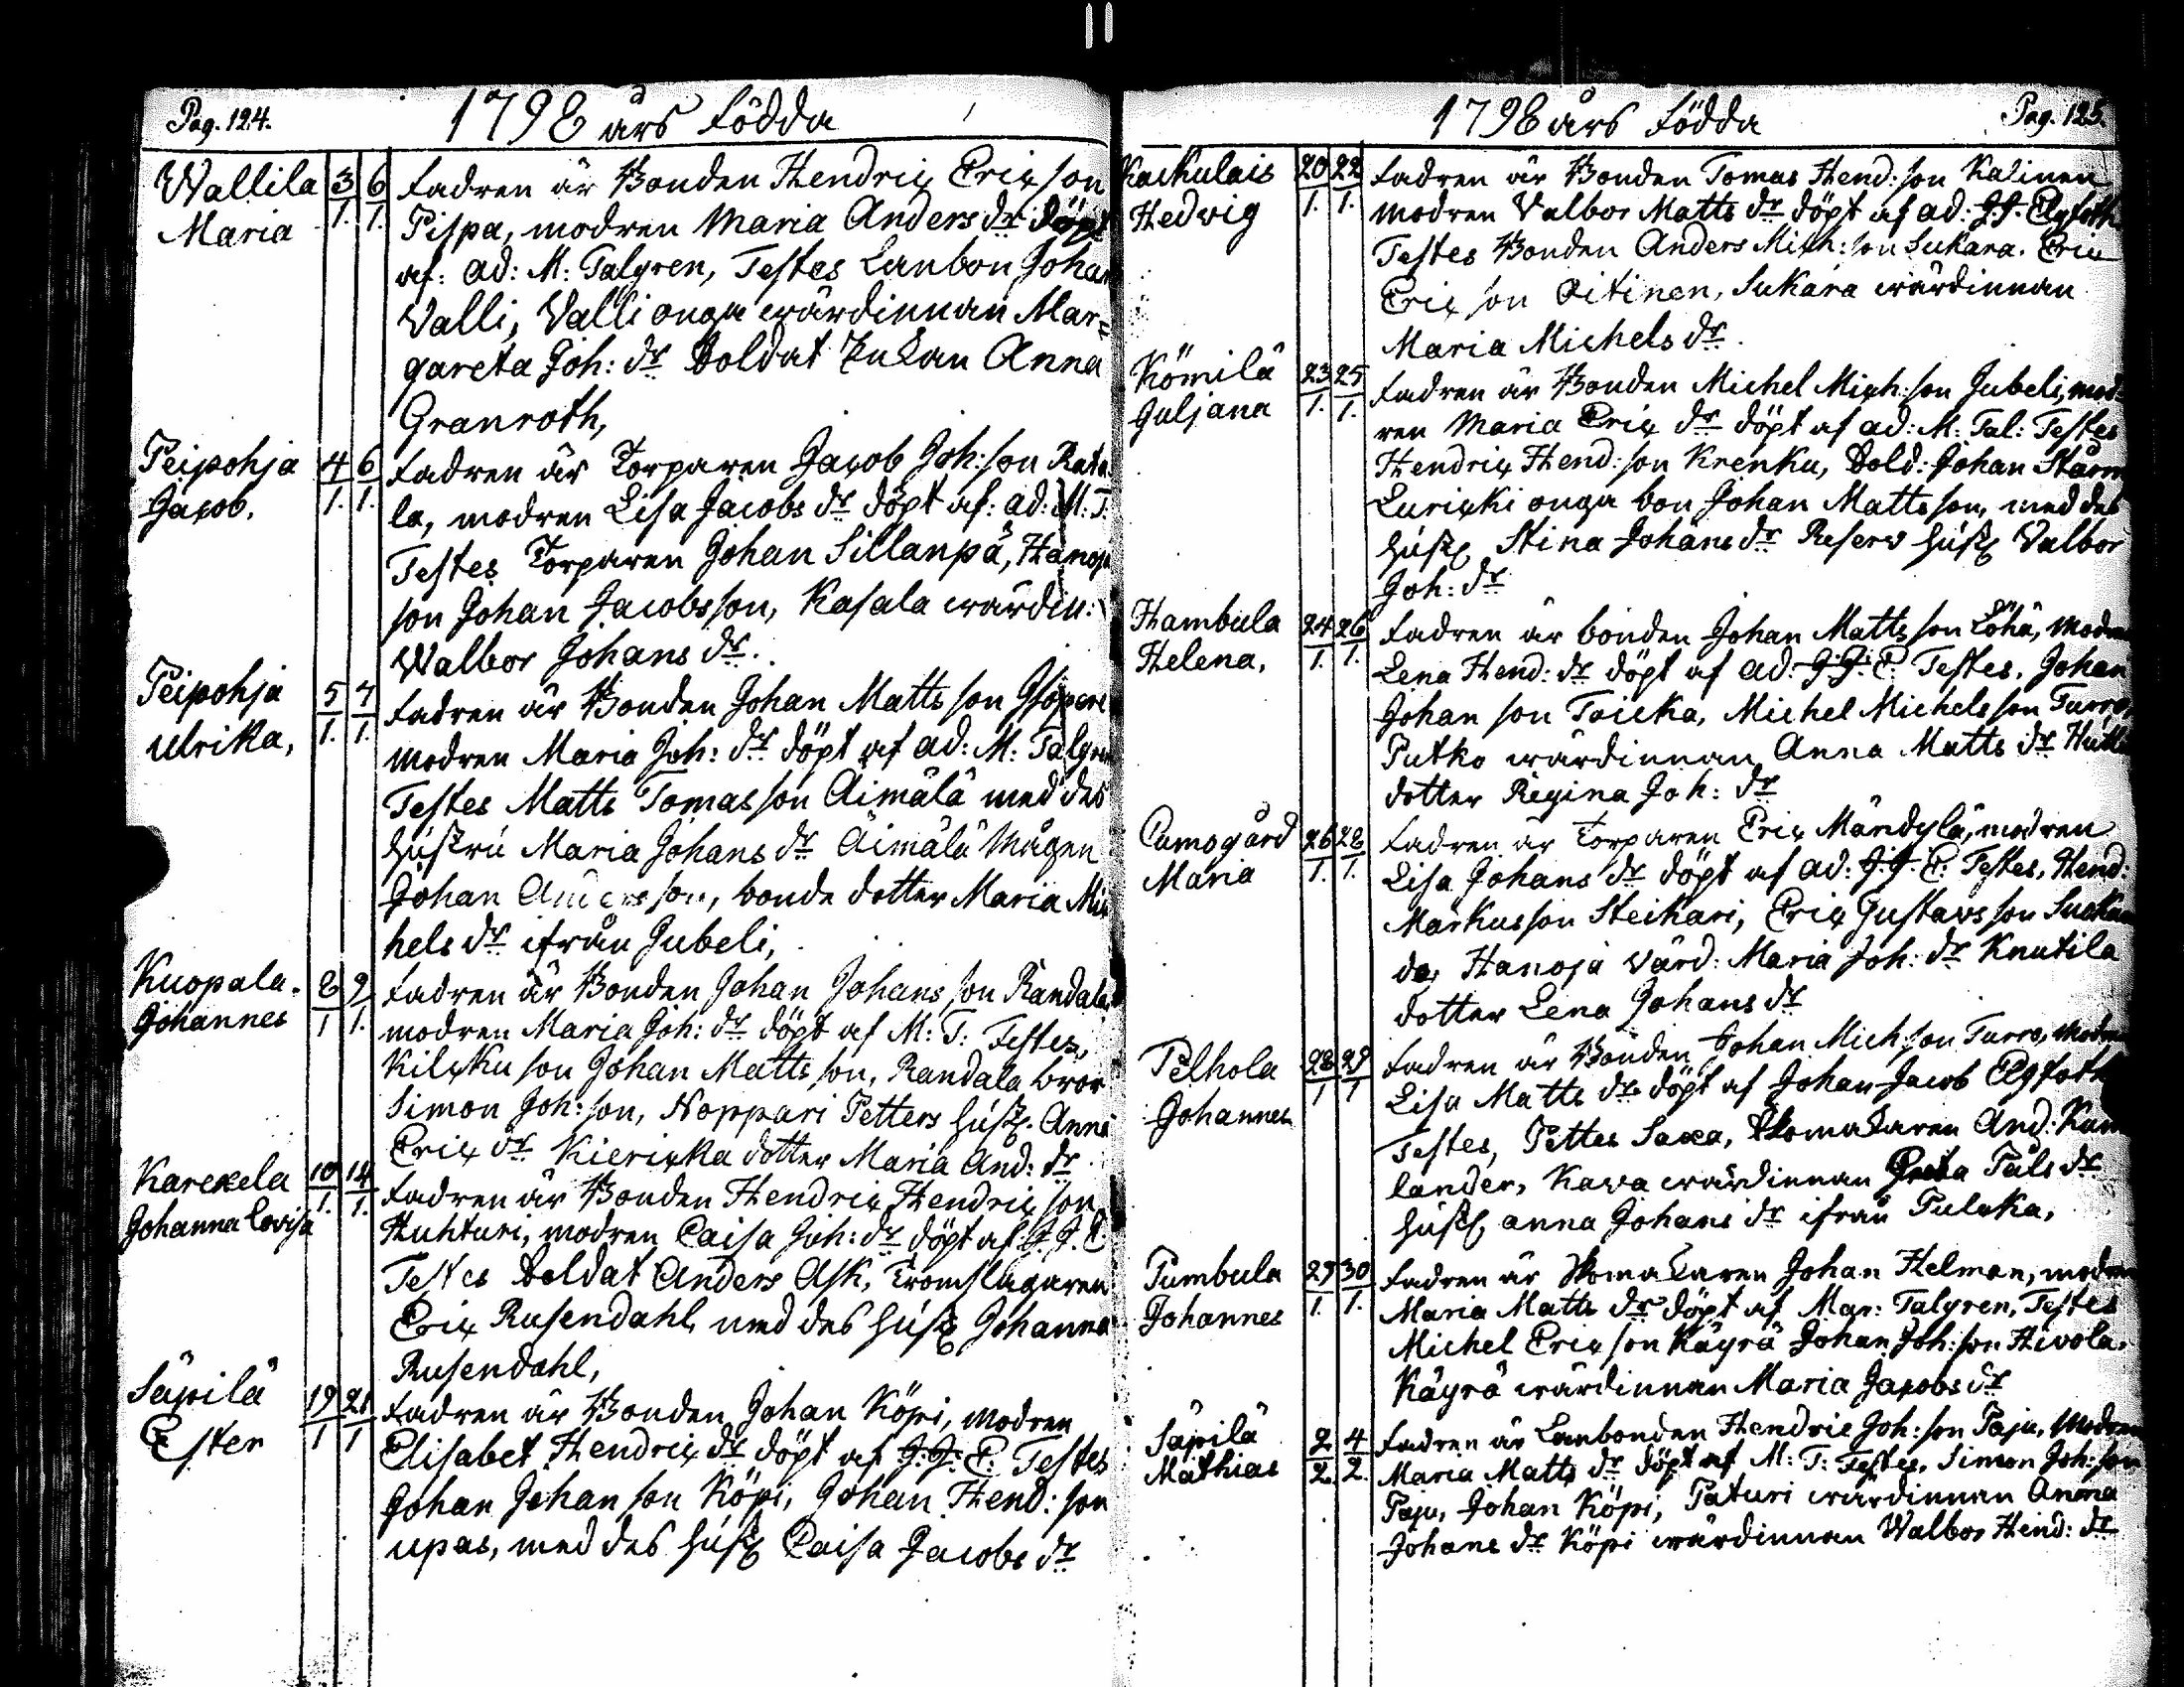 Pag. 124.
1798 års Födda
Wallila 3/1. 6/1. Fadren är Bonden Hendrix Erix son
Maria Pispa, modren Maria Anders dr döpt
af: ad: M: Talgren, Testes Lanbon Johan
Valli, Valli onga wärdinnan Mar=
gareta Joh: dr Soldat Enkan Anna
Granroth,
Peipohja 4/1. 6/1. Fadren är Torparen Jacob Joh: son Rata
Jacob. la, modren Lisa Jacobs dr döpt af: ad: M: T.
Testes Torparen Johan Sillanpä, Hanoja
son Johan Jacobsson, Kasala wärdin:
Walbor Johans dr.
Peipohja 5/1. 7/1. Fadren är Bonden Johan Matts son
Ulrika, modren Maria Joh: dr döpt af ad: M: Talgren
Testes Matts Tomas son Äimälä med des
hustru Maria Johans dr Äimälä Mågen
Johan Anders son, bonde dotter Maria Mic
hels dr ifrån Jubeli,
Kuopala. 8/1 9/1. Fadren är Bonden Johan Johans son Randala
Johannes modren Maria Joh: dr döpt af M: T: Testes,
Kilxku son Johan Matts son, Randala bror
Simon Joh: son, Noppari Petters hust. Anna
Erix dr Kierixka dotter Maria And: dr
Karexela 10/1. 14/1. Fadren är Bonden Hendrix Hendrix son
Johanna Lovisa Huhturi, modren Caisa Joh: dr döpt af J. J. E.
Testes Soldat Anders Ask, Tromslagaren
Erix Rusendahl, med des hust Johanna
Rusendahl,
Säpilä 19/1 21/1 Fadren är Bonden Johan Köpi, modren
Ester Elisabet Hendrix dr döpt af J. J. E. Testes
Johan Johan son Köpi, Johan Hend: son
upas, med des hust Caisa Jacobs dr
1798 års Födda
Pag. 125.
Kaskulais 20/1. 22/1. Fadren är Bonden Tomas Hend: son Kalinen
Hedvig modren Valbor Matts dr döpt af ad: J. J. Elgfoth
Testes Bonden Anders Mich: son Sukara. Eric
Erix son Oitinen, Sukara wärdinnan
Maria Michels dr.
Kömilä 23/1. 25/1. Fadren är Bonden Michel Mich: son Jubeli, mod=
Juljana ren Maria Erix dr döpt af ad: M: Tal: Testes
Hendrix Hend: son Krenku, Sold: Johan Starm
Lurixki onga bon Johan Matts son, med des
hust Stina Johans dr Reserv hust Valbor
Joh: dr
Hambula 24/1. 26/1. Fadren är bonden Johan Matts son Löhä, modren
Helena, Lena Hend: dr döpt af ad: J. J. E. Testes. Johan
Johan son Toicka, Michel Michels son Turro,
Putko wärdinnan Anna Matts dr
dotter Regina Joh: dr
Cumogård 26/1. 28/1. Fadren är Torparen Erix Mändylä, modren
Maria Lisa Johans dr döpt af ad: J. J. E. Testes, Hend:
Markusson Steikari, Erix Gustavs son
da, Hanoja Värd: Maria Joh: dr Knutila
dotter Lena Johans dr
Pelhola 28/1 29/1 Fadren är Bonden Johan Mich: son Turro, modren
Johannes Lisa Matts dr döpt af Johan Jacob Elgfoth
Testes, Petter Saxa, Skomakaren And: Kum
lander, Kava wärdinnan Greta Påls dr
hust anna Johans dr ifrån Pulaka,
Pumbula 29/1. 30/1. Fadren är Skomakaren Johan Helman, modren
Johannes Maria Matts dr döpt af Mar: Talgren, Testes
Michel Erix son Käyrä Johan Joh: son Hivola.
Käyrä wärdinnan Maria Jacobs dr
Säpilä 2/2. 4/2. Fadren är Lanbonden Hendric Joh: son Paju, Modren
Mathias Maria Matts dr döpt af M: T: Testes, Simon Joh: son
Paju, Johan Köpi, Paturi wärdinnan Anna
Johans dr Köpi wärdinnan Walbor Hend: dr